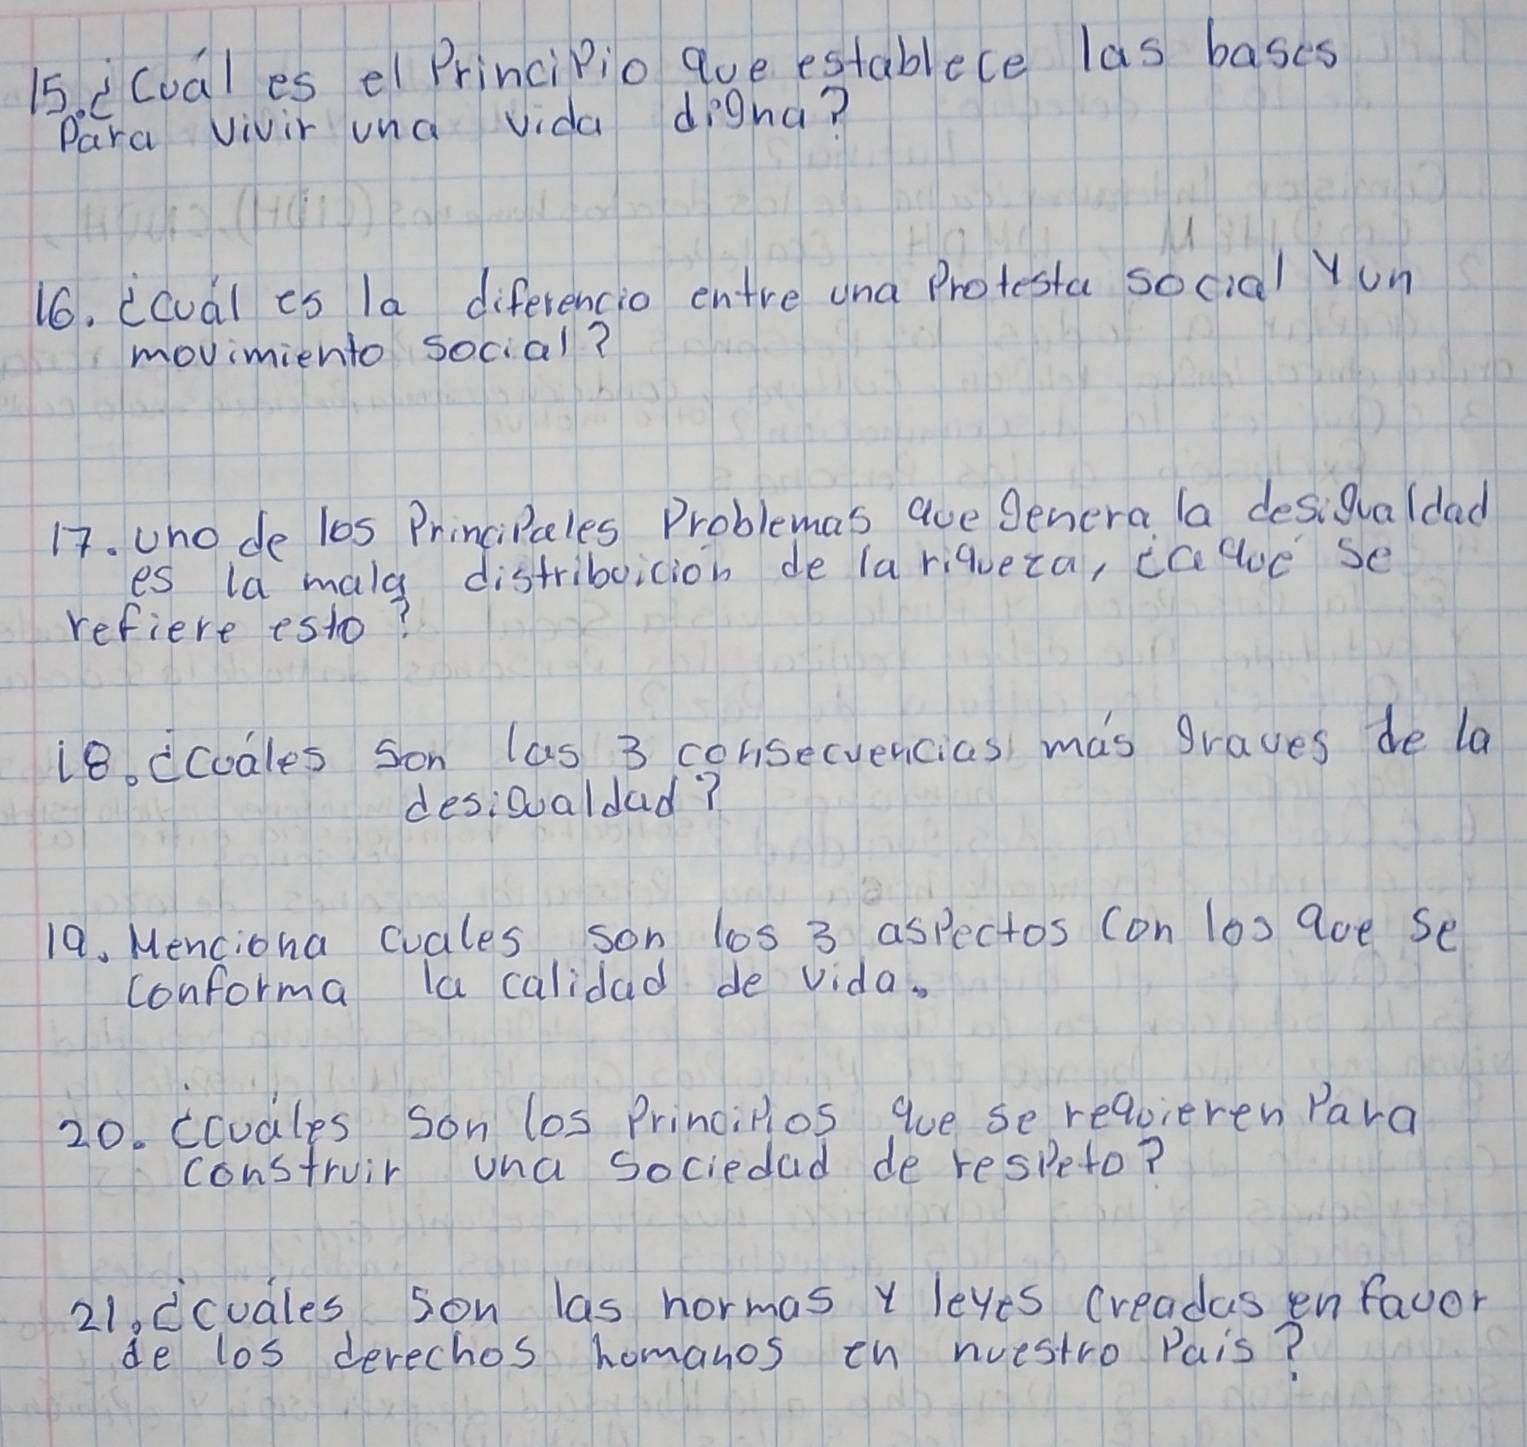 15. ¿Cuál es el Principio que establece las bases
Para vivir una vida digna?
16. ¿cuál es la diferencio entre una Protesta social y un
movimiento social?
17. Uno de los Principales Problemas que genera la desigualdad
es la mala distribuición de la riqueza, ¿a qué se
refiere esto?
18. ¿Cuáles son las 3 consecuencias más graves de la
desigualdad?
19. Menciona cuales son los 3 aspectos con los que se
conforma la calidad de vida.
20. ¿cuáles son los Principios que se requieren Para
construir una sociedad de respeto?
21. ¿cuáles son las normas y leyes creadas en favor
de los derechos homanos en nuestro País?